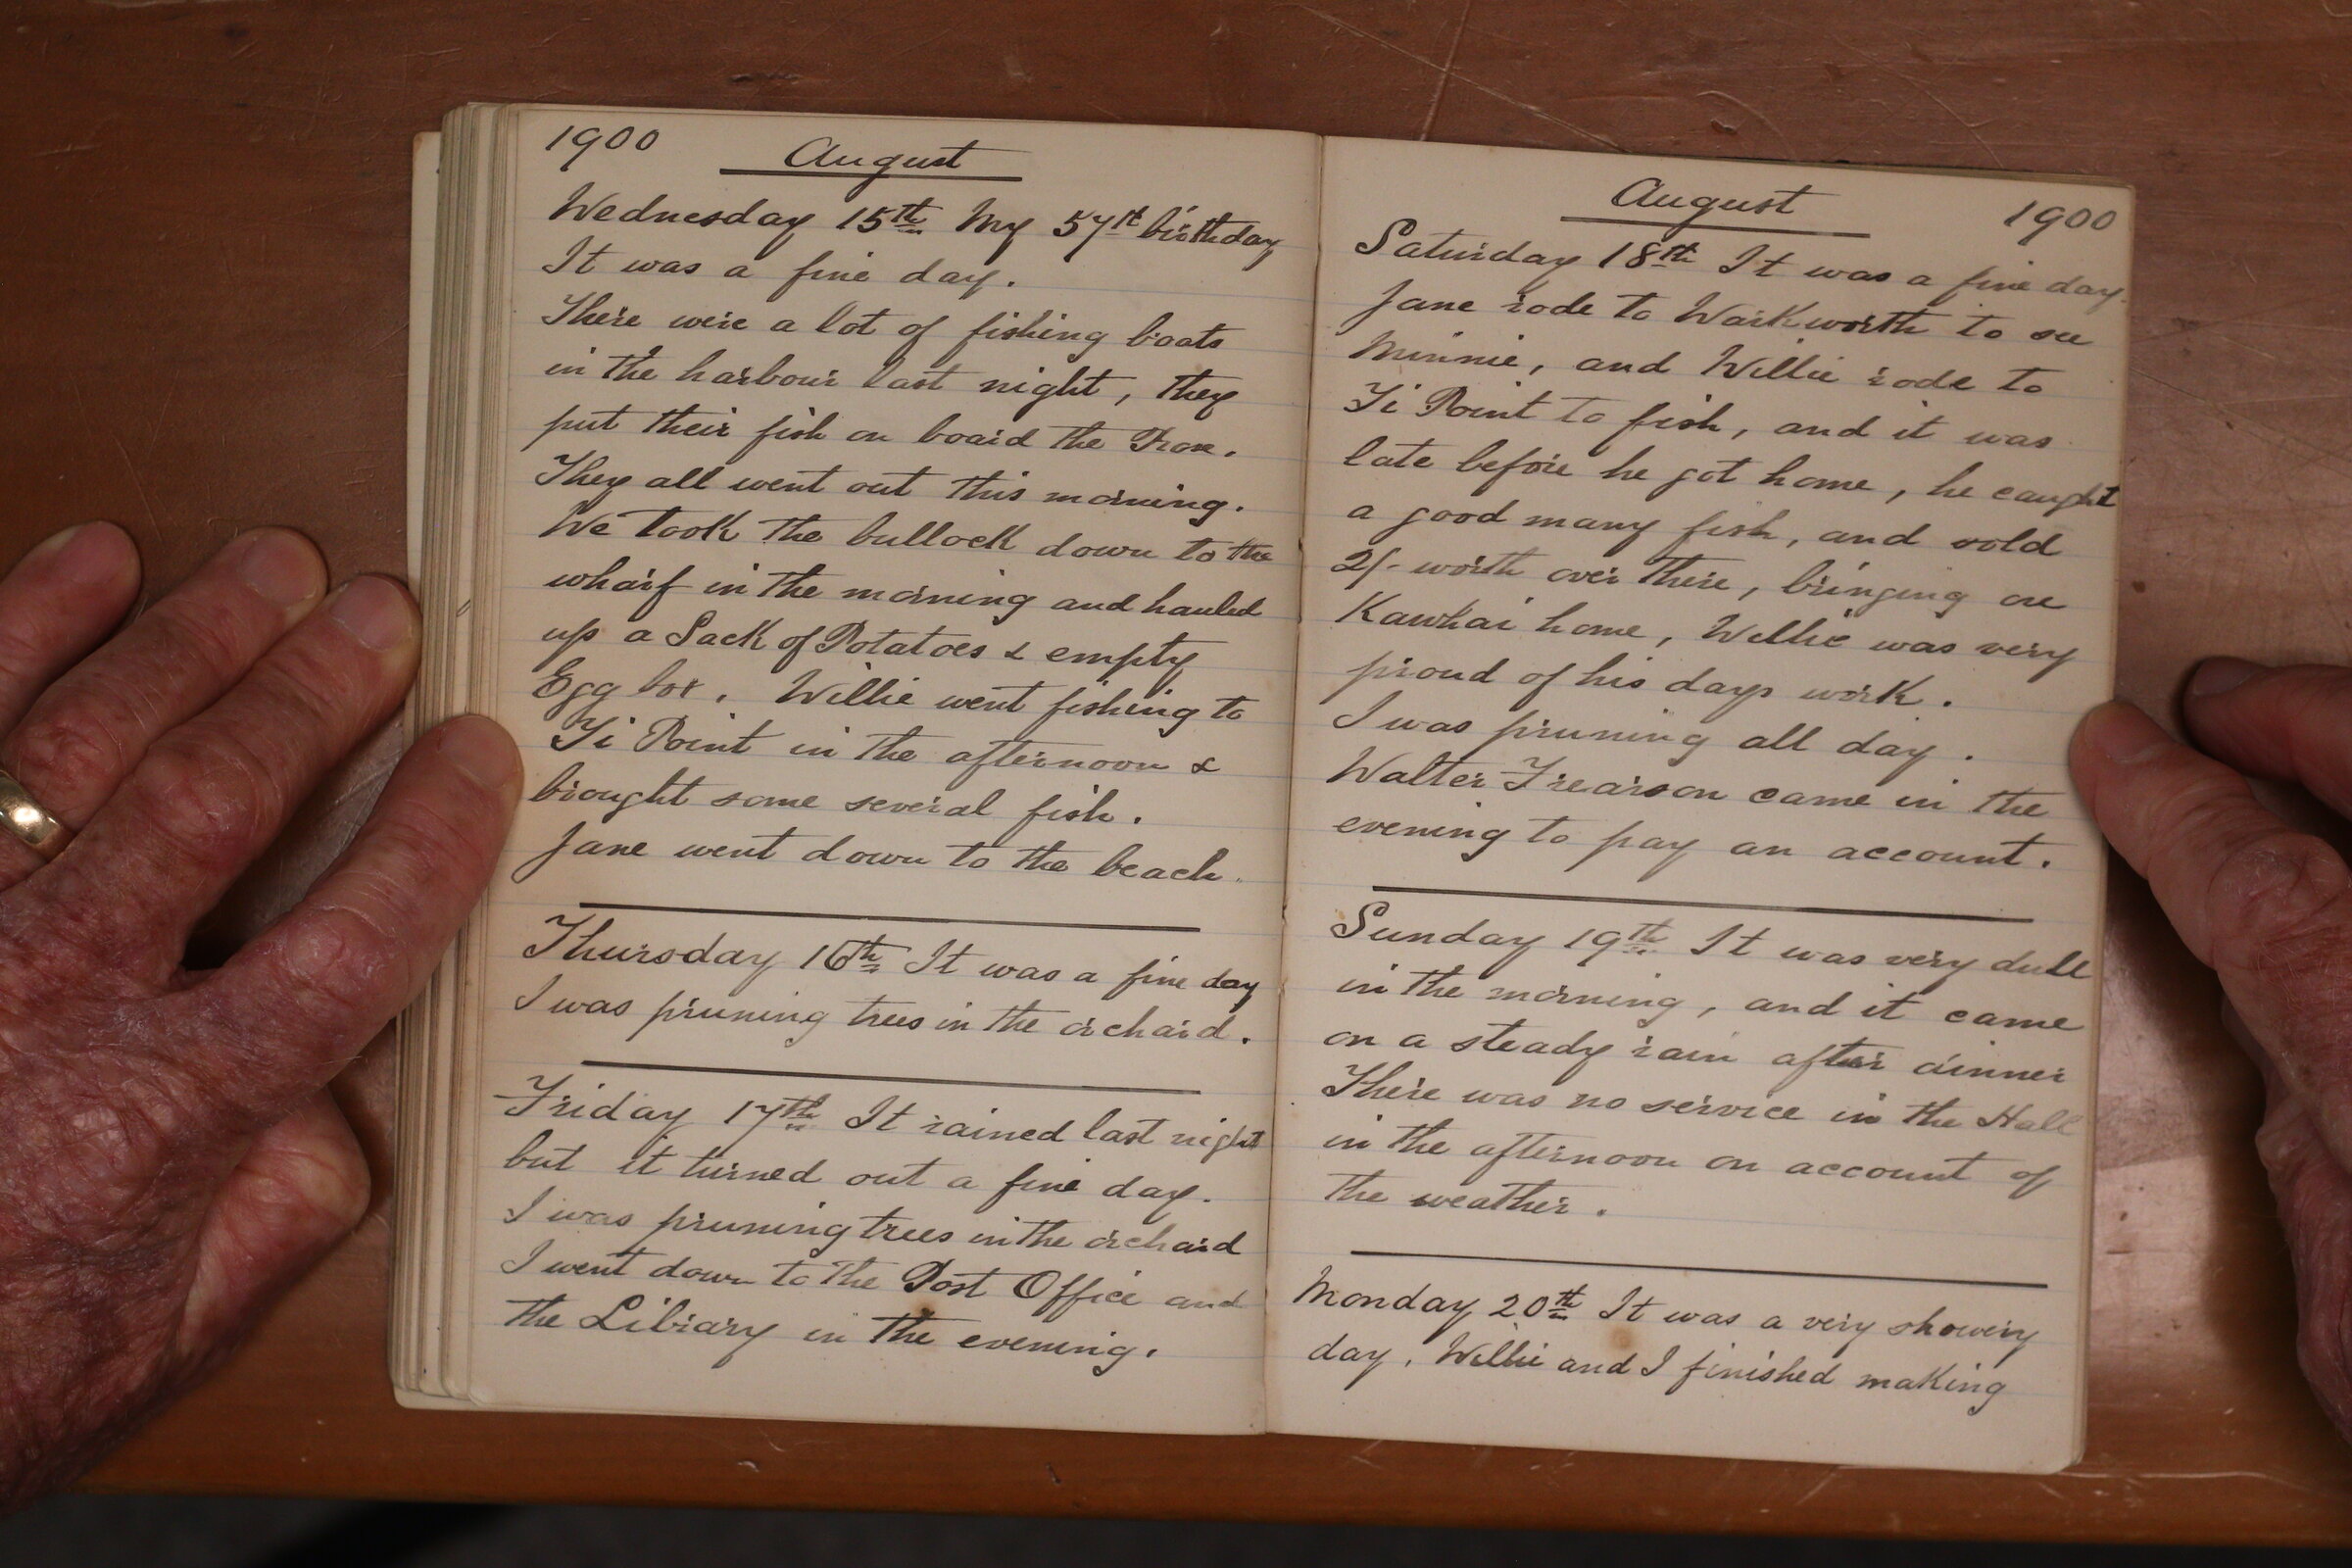 1900
August
Wednesday 15th My 57th birthday
It was a fine day.
There were a lot of fishing boats
in the harbour last night, they
put their fish on board the
They all went out this morning.
We took the bullock down to the
wharf in the morning and hauled
up a Sack of Potatoes & empty
Egg box. Willie went fishing to
Ti Point in the afternoon &
brought some several fish.
Jane went down to the beach.
Thursday 16th It was a fine day
I was pruning trees in the orchard.
Friday 17th It rained last night
but it turned out a fine day.
I was pruning trees in the orchard
I went down to the Post Office and
the Library in the evening.
August
1900
Saturday 18th It was a fine day.
Jane rode to Warkworth to see
Minnie, and Willie rode to
Ti Point to fish, and it was
late before he got home, he caught
a good many fish, and sold
2/- worth over there, bringing one
Kawhai home, Willie was very
proud of his days work.
I was pruning all day.
Walter Frearson came in the
evening to pay an account.
Sunday 19th It was very dull
in the morning, and it came
on a steady rain after dinner
There was no service in the Hall
in the afternoon on account of
the weather.
Monday 20th It was a very showery
day. Willie and I finished making